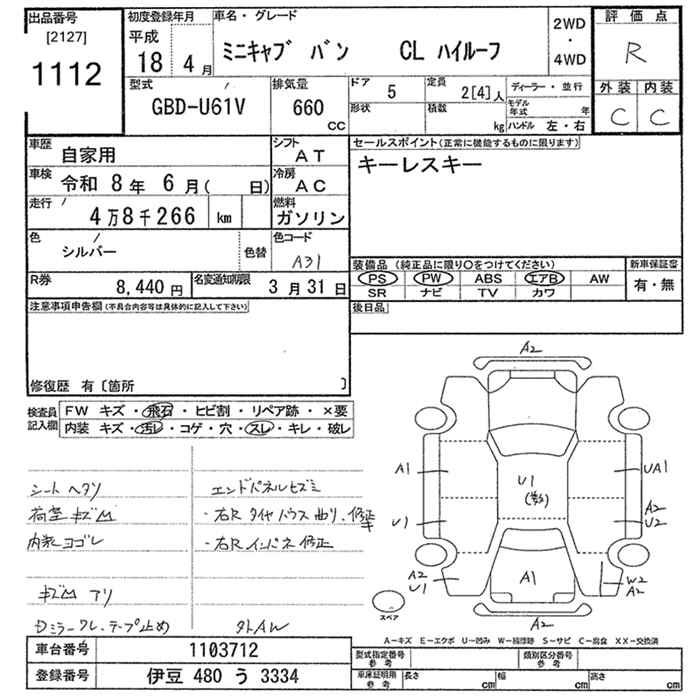 出品番号
[2127]
1112
初度登録年月
平成
18 4 月
車名・グレード
ミニキャブ バン CL ハイルーフ
2WD
・
4WD
評価点
R
外装 内装
C C
型式
GBD-U61V
排気量
660
CC
ドア
5
定員
2[4]人
形状
積数
kg
ディーラー・並行
モデル年式 年
ハンドル 左・右
車歴
自家用
シフト
AT
車検 令和 8年 6月( 日)
冷房
AC
走行
4万8千266 km
燃料
ガソリン
色
シルバー
色替
色コード
A31
R券
8,440 円
名変通知期限
3月31日
セールスポイント(正常に機能するものに限ります)
キーレスキー
装備品 (純正品に限り○をつけてください)
PS PW ABS エアB AW
SR ナビ TV カワ
新車保証書
有・無
後日品
注意事項申告欄(不具合内容等は具体的に記入して下さい)
修復歴 有〔箇所 〕
検査員
記入欄
FW キズ・飛石・ヒビ割・リペア跡・×要
内装 キズ・汚レ・コゲ・穴・スレ・キレ・破レ
シートヘタリ
荷室キズ凹
内装ヨゴレ
キズ凹アリ
Dミラーワレ、テープ止め
エンドパネルヒズミ
・右Rタイヤハウス曲り、修正キ
・右Rインパネ修正
外AW
A2
A1
U1
UA1
U1
A2
U2
A2
U1
A1
W2
A2
A2
スペア
A-キズ E-エクボ U-凹み W-補修跡 S-サビ C-腐食 XX-交換済
車台番号
1103712
登録番号
伊豆 480 う 3334
型式指定番号
参考
類別区分番号
参考
車庫証明用
参考
長さ cm
幅 cm
高さ cm